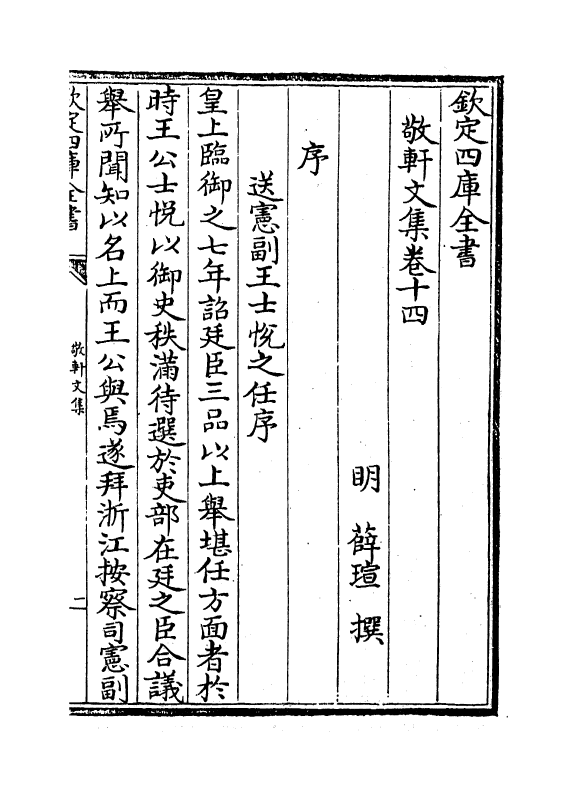 欽定四庫全書
敬軒文集卷十四
明 薛瑄 撰
序
送憲副王士悅之任序
皇上臨御之七年詔廷臣三品以上舉堪任方面者於
時王公士悅以御史秩滿待選於吏部在廷之臣合議
舉所聞知以名上而王公與焉遂拜浙江按察司憲副
欽定四庫全書
敬軒文集